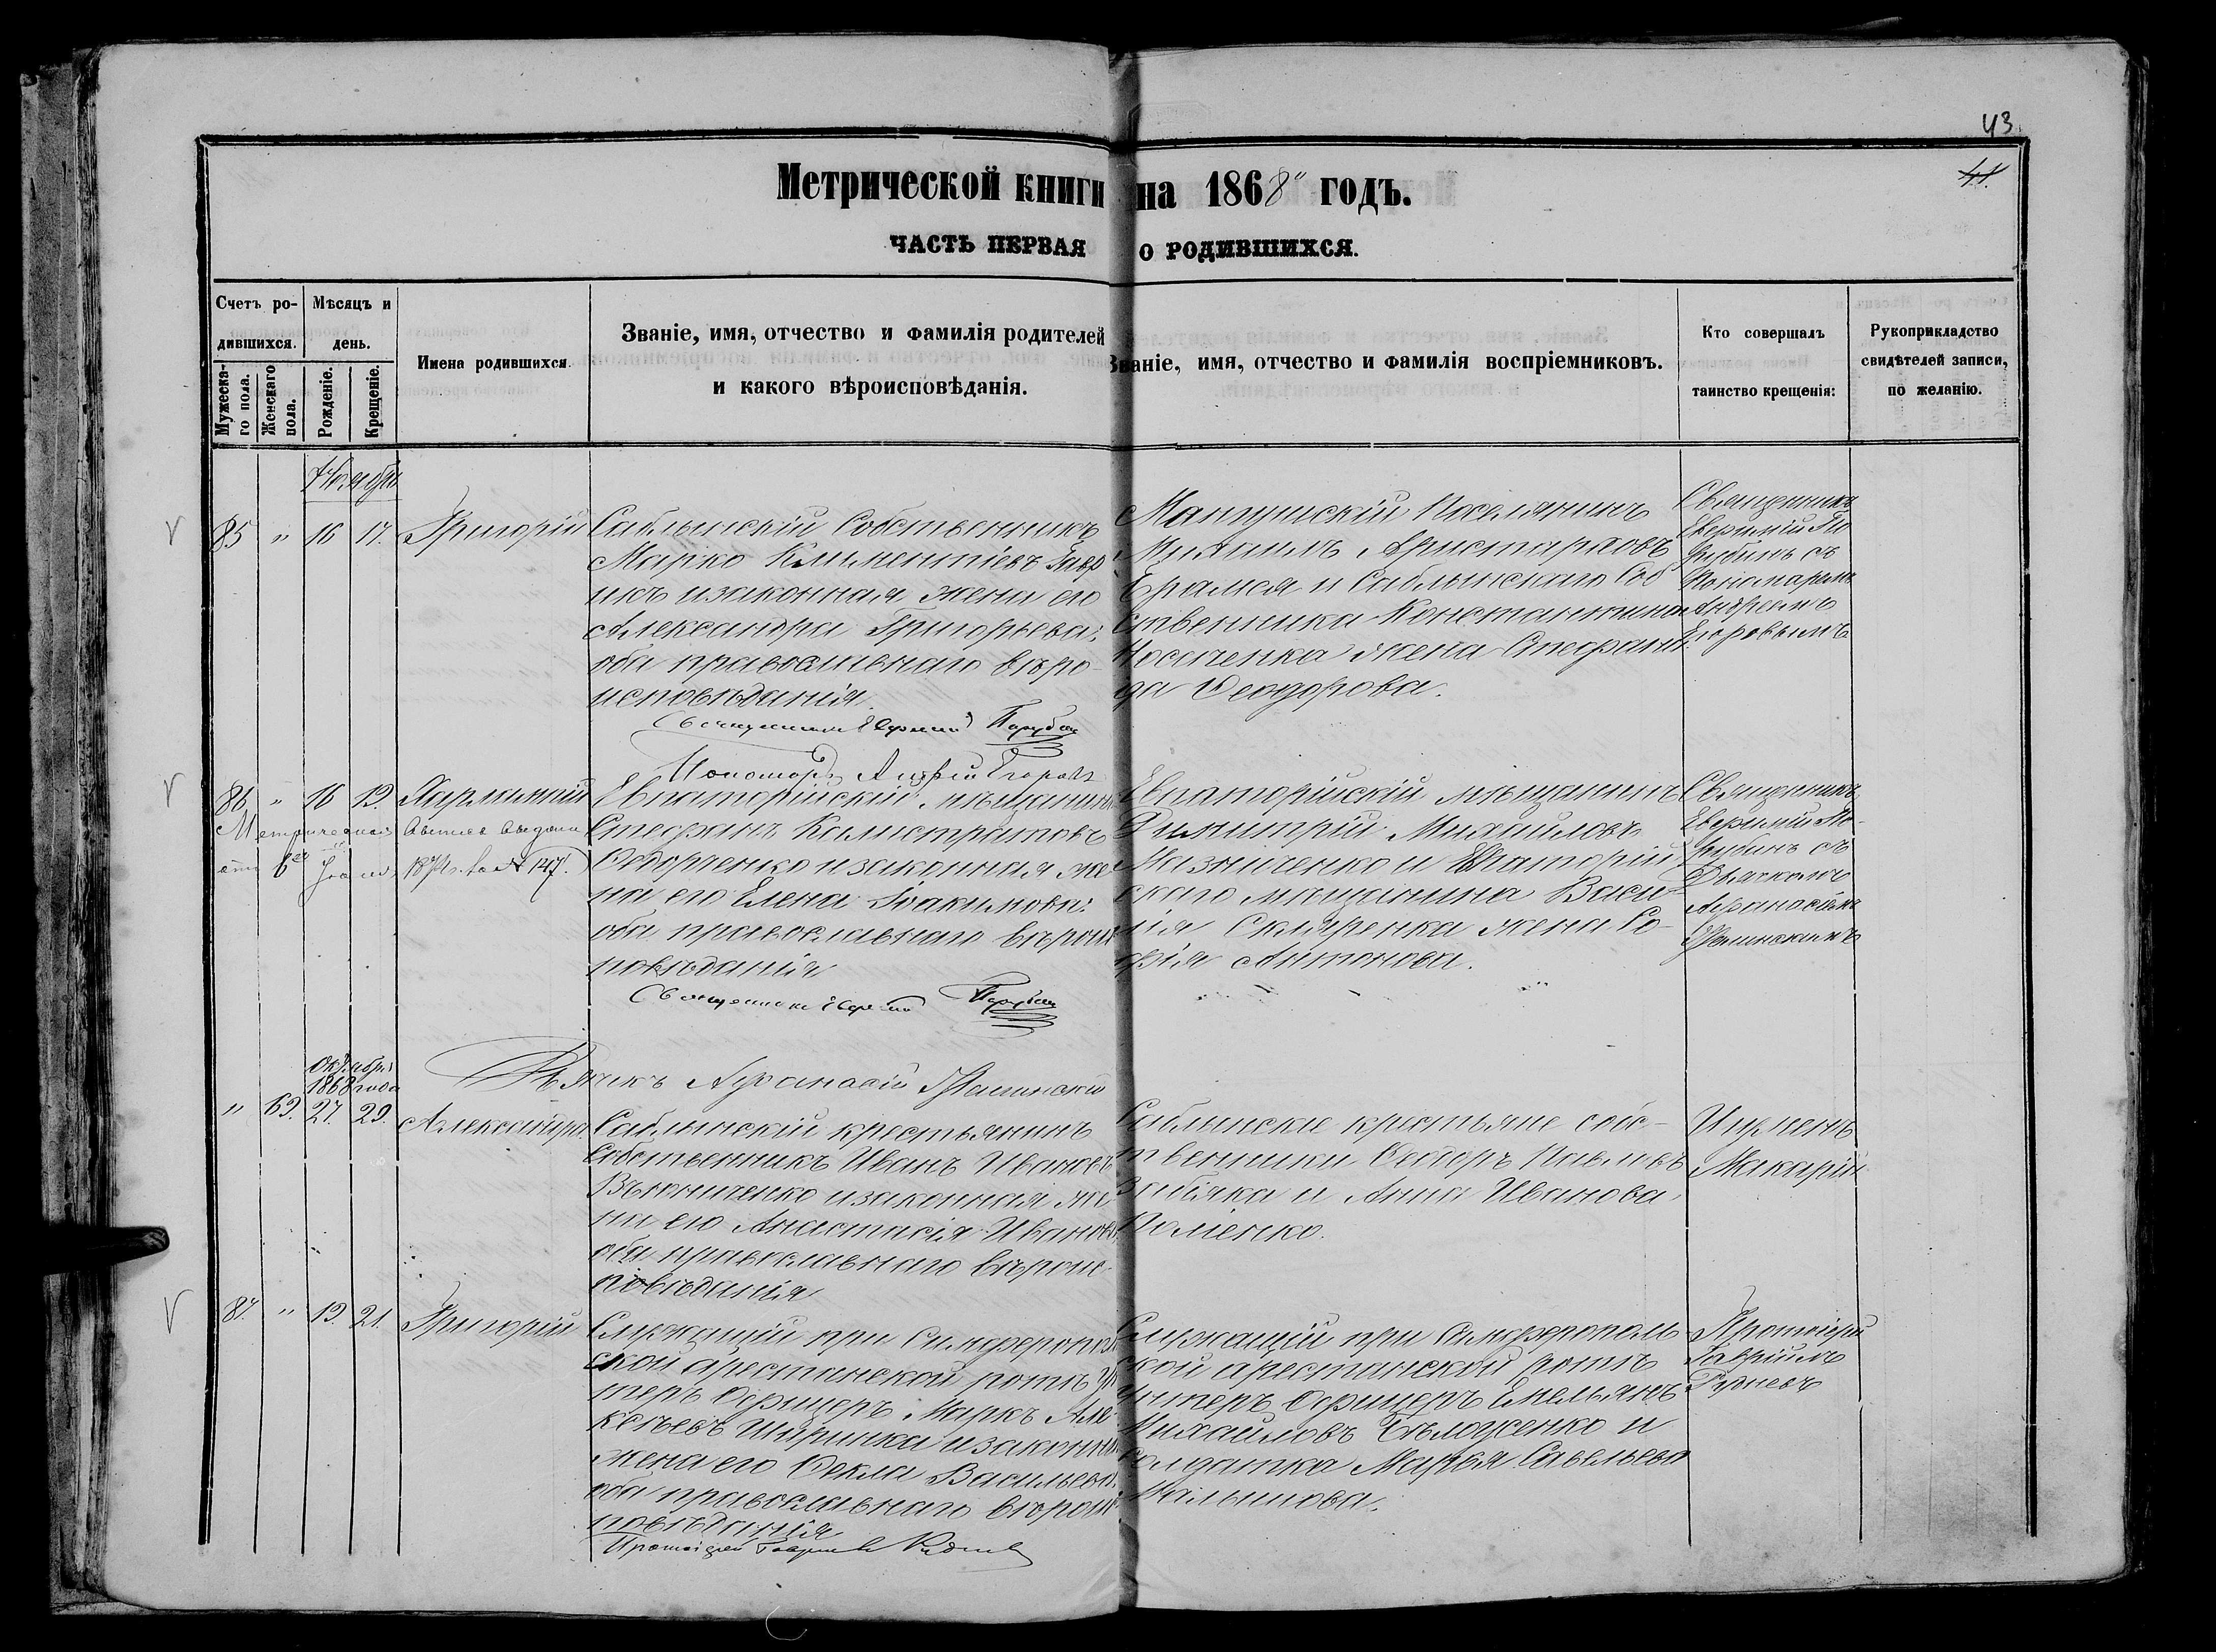 43.
41.
Метрической книги на 1868" годъ.
ЧАСТЬ ПЕРВАЯ О РОДИВШИХСЯ.
Счетъ ро-
дившихся.
Мужеска-
го пола.
Женскаго
пола.
Мѣсяцъ и
день.
Рожденіе.
Крещеніе.
Имена родившихся.
Званіе, имя, отчество и фамилія родителей
и какого вѣроисповѣданія.
Званіе, имя, отчество и фамилія воспріемниковъ.
Кто совершалъ
таинство крещенія:
Рукоприкладство
свидѣтелей записи,
по желанію.
Ноября
85 " 16 17. Григорій
Саблынскій Собственникъ
Марко Климентіевъ
икъ изаконная жена его
Александра Григорьева:
оба православнаго вѣро-
исповѣданія.
Священникъ Евфимій Парубин
Пономарь Андрей Егоровъ
Мангушскій Поселянинъ
Михаилъ Аристарховъ
и Саблынскаго Соб
ственника Константина
Носаченка жена Стефани
да Ѳеодорова.
Священникъ
Евфимій Па
рубинъ съ
Пономаремъ
Андреемъ
Егоровымъ
86. " 16 19. Харлампій
Метрическая
выдана
Евпаторійскій мѣщанинъ
Стефанъ Калистратовъ
Ѳедорченко изаконная же
на его Елена Іоакимова:
оба православнаго вѣроис
повѣданія
Священникъ Евфимій Парубин
Дьячикъ Афанасій
Евпаторійскій мѣщанинъ
Димитрій Михайловъ
Мазниченко и Евпаторій
скаго мѣщанина Васи
лія Скляренка жена Со-
фія Антонова.
Священникъ
Евфимій Па-
рубинъ съ
Дьячкомъ
Афанасіемъ
Октября
1868 года
" 69. 27. 29. Александра.
Саблынскій крестьянинъ
Собственникъ Иванъ Ивановъ
изаконная же
на его Анастасія Иванова
оба православнаго вѣроис-
повѣданія
Саблынскіе крестьяне собс-
твенники Ѳеодоръ Павловъ
и Анна Иванова
Игуменъ
Макарій
87. " 19. 21. Григорій
Служащій при Симферополь
ской арестанской ротѣ Ун
теръ Офицеръ Маркъ Але
ксѣевъ Ширинка изаконная
жена его Ѳекла Васильева
оба православнаго вѣроис-
повѣданія
Протоіерей Гавріилъ Руднев
Служащій при Симферополь
ской арестанской ротѣ
унтеръ Офицеръ Емельянъ
Михайловъ и
солдатка Марья Савельева
Протоіерей
Гавріилъ
Рудневъ